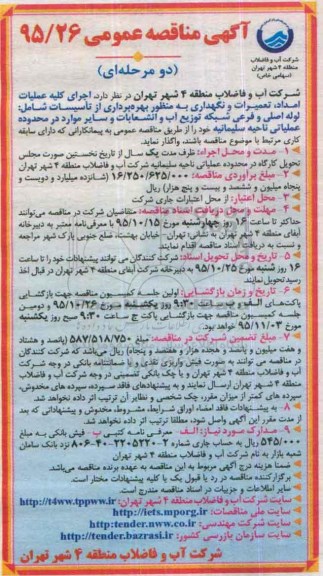 آگهی مناقصه عمومی ۹۵/۲۶
(دو مرحله‌ای)
شرکت آب و فاضلاب
منطقه ۴ شهر تهران
(سهامی خاص)
شرکت آب و فاضلاب منطقه ۴ شهر تهران در نظر دارد، اجرای کلیه عملیات
امداد، تعمیرات و نگهداری به منظور بهره‌برداری از تأسیسات شامل:
لوله اصلی و فرعی شبکه توزیع آب و انشعابات و سایر موارد در محدوده
عملیاتی ناحیه سلیمانیه خود را از طریق مناقصه عمومی به پیمانکارانی که دارای سابقه
کاری مرتبط با موضوع مناقصه باشند، واگذار نماید.
۱- مدت و محل اجرا: ظرف مدت یک سال از تاریخ نخستین صورت مجلس
تحویل کارگاه در محدوده عملیاتی ناحیه سلیمانیه شرکت آب و فاضلاب منطقه ۴ شهر تهران
۲- مبلغ برآوردی مناقصه: ۱۶/۲۵۰/۶۲۵/۰۰۰ (شانزده میلیارد و دویست و
پنجاه میلیون و ششصد و بیست و پنج هزار) ریال
۳- اعتبار: از محل اعتبارات جاری شرکت
۴- مهلت و محل دریافت اسناد مناقصه: متقاضیان شرکت در مناقصه می‌توانند
حداکثر تا ساعت ۱۶ روز چهارشنبه مورخ ۹۵/۱۰/۱۵ با معرفی‌نامه معتبر به دبیرخانه
آبفای منطقه ۴ شهر تهران به نشانی: تهران- خیابان بهشت، ضلع جنوبی پارک شهر مراجعه
و نسبت به دریافت اسناد مناقصه اقدام نمایند.
۵- تاریخ و محل تحویل اسناد: شرکت کنندگان می توانند پیشنهادات خود را تا ساعت
۱۶ روز شنبه مورخ ۹۵/۱۰/۲۵ به دبیرخانه شرکت آبفای منطقه ۴ شهر تهران در قبال اخذ
رسید تحویل نمایند.
۶- تاریخ و زمان بازگشایی: اولین جلسه کمیسیون مناقصه جهت بازگشایی
پاکت‌های الف و ب ساعت ۹:۳۰ روز یکشنبه مورخ ۹۵/۱۰/۲۶ و دومین
جلسه کمیسیون مناقصه جهت بازگشایی پاکت ج ساعت ۹:۳۰ صبح روز یکشنبه
مورخ ۹۵/۱۱/۰۳ خواهد بود.
۷- مبلغ تضمین شرکت در مناقصه: مبلغ ۵۸۷/۵۱۸/۷۵۰ (پانصد و هشتاد
و هفت میلیون و پانصد و هجده هزار و هفتصد و پنجاه) ریال می‌باشد که شرکت کنندگان
در مناقصه می توانند به صورت فیش واریزی نقدی و یا ضمانتنامه بانکی در وجه شرکت
آب و فاضلاب منطقه ۴ شهر تهران و یا چک بانکی تضمینی در وجه شرکت آب و فاضلاب
منطقه ۴ شهر تهران ارسال نمایند و به پیشنهادهای فاقد سپرده، سپرده های مخدوش،
سپرده های کمتر از میزان مقرر، چک شخصی و نظایر آن ترتیب اثر داده نخواهد شد.
۸- به پیشنهادات فاقد امضاء اوراق شرایط، مشروط، مخدوش و پیشنهاداتی که بعد
از مدت مقرر این آگهی واصل شود، مطلقا ترتیب اثر داده نخواهد شد.
۹- مدارک مورد نیاز: الف- معرفی نامه کتبی ب- فیش بانکی به مبلغ
۵۴۵/۰۰۰ ریال به حساب جاری شماره نزد بانک سامان
شعبه بازار به نام شرکت آب و فاضلاب منطقه ۴ شهر تهران
ضمنا هزینه درج آگهی مربوط به این مناقصه به عهده برنده مناقصه می‌باشد.
برگزارکننده مناقصه در رد یا قبول یک یا کلیه پیشنهادات مختار است.
سایر اطلاعات و جزئیات در اسناد مناقصه مندرج است.
سایت شرکت آب و فاضلاب منطقه ۴ شهر تهران: http://t4ww.tppww.ir
سایت ملی مناقصات: http://iets.mporg.ir
سایت شرکت مهندسی: http:tender.nww.co.ir
سایت سازمان بازرسی کشور: http://tender.bazrasi.ir
شرکت آب و فاضلاب منطقه ۴ شهر تهران